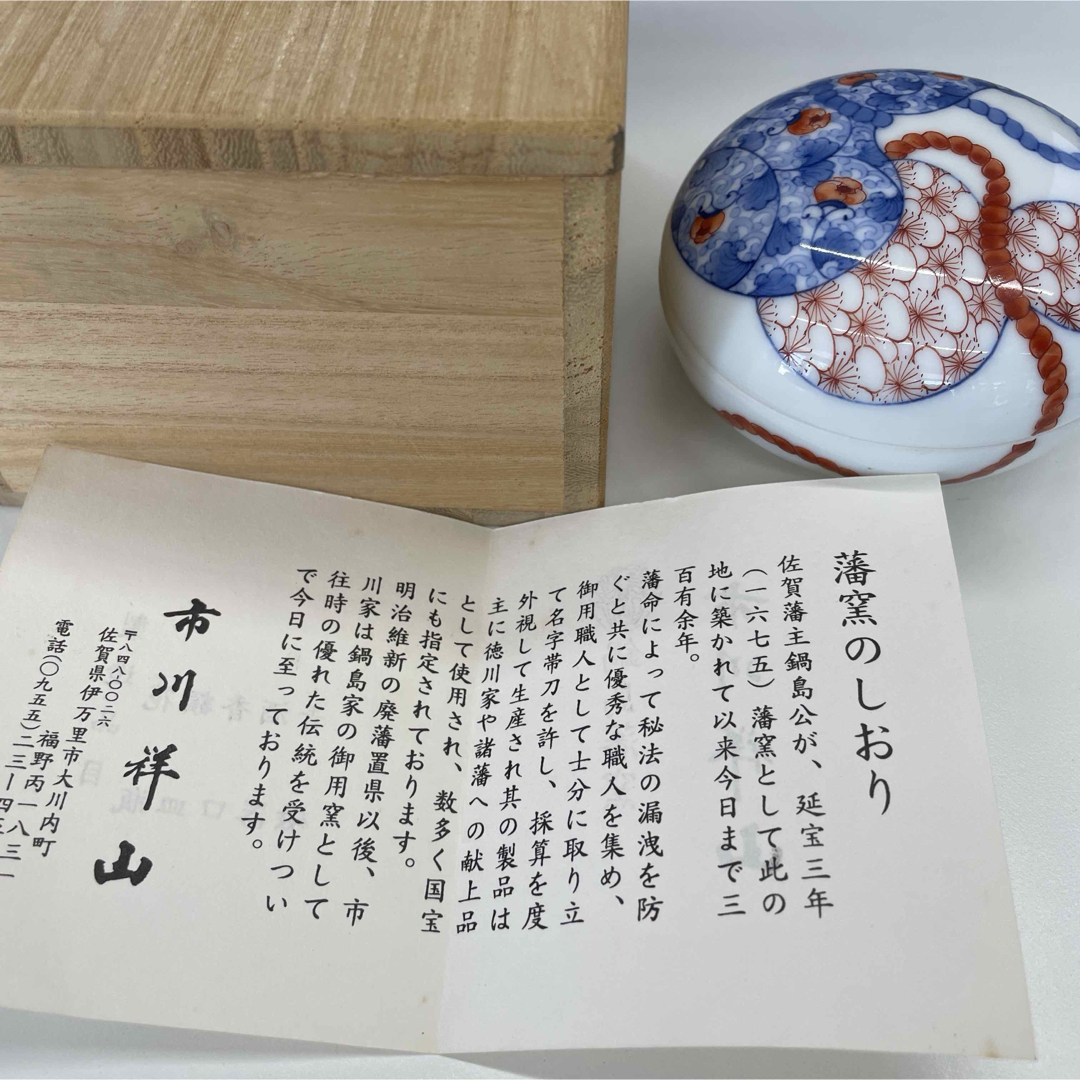 藩窯のしおり
佐賀藩主鍋島公が、延宝三年
(一六七五)藩窯として此の
地に築かれて以来今日まで三
百有余年。
藩命によって秘法の漏洩を防
ぐと共に優秀な職人を集め、
御用職人として士分に取り立
て名字帯刀を許し、採算を度
外視して生産され其の製品は
主に徳川家や諸藩への献上品
として使用され、数多く国宝
にも指定されております。
明治維新の廃藩置県以後、市
川家は鍋島家の御用窯として
往時の優れた伝統を受けつい
で今日に至っております。
市川祥山
〒八四八-〇〇二六
佐賀県伊万里市大川内町
福野丙一八三一
電話(〇九五五)二三-四五